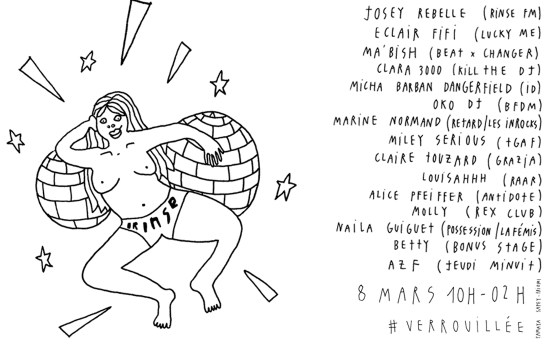 JOSEY REBELLE (RINSE FM)
ECLAIR FIFI (LUCKY ME)
MA'BISH (BEAT x CHANGER)
CLARA 3000 (KILL THE DJ)
MICHA BARBAN DANGERFIELD (ID)
OKO DJ (BFDM)
MARINE NORMAND (RETARD/LES INROCKS)
MILEY SERIOUS (TGAF)
CLAIRE TOUZARD (GRAZIA)
LOUISAHHH (RAAR)
ALICE PFEIFFER (ANTIDOTE)
MOLLY (REX CLUB)
NAÏLA GUIGUET (POSSESSION/LAFÉMIS)
BETTY (BONUS STAGE)
AZF (JEUDI MINUIT)
8 MARS 10H-02H
#VERROUILLÉE